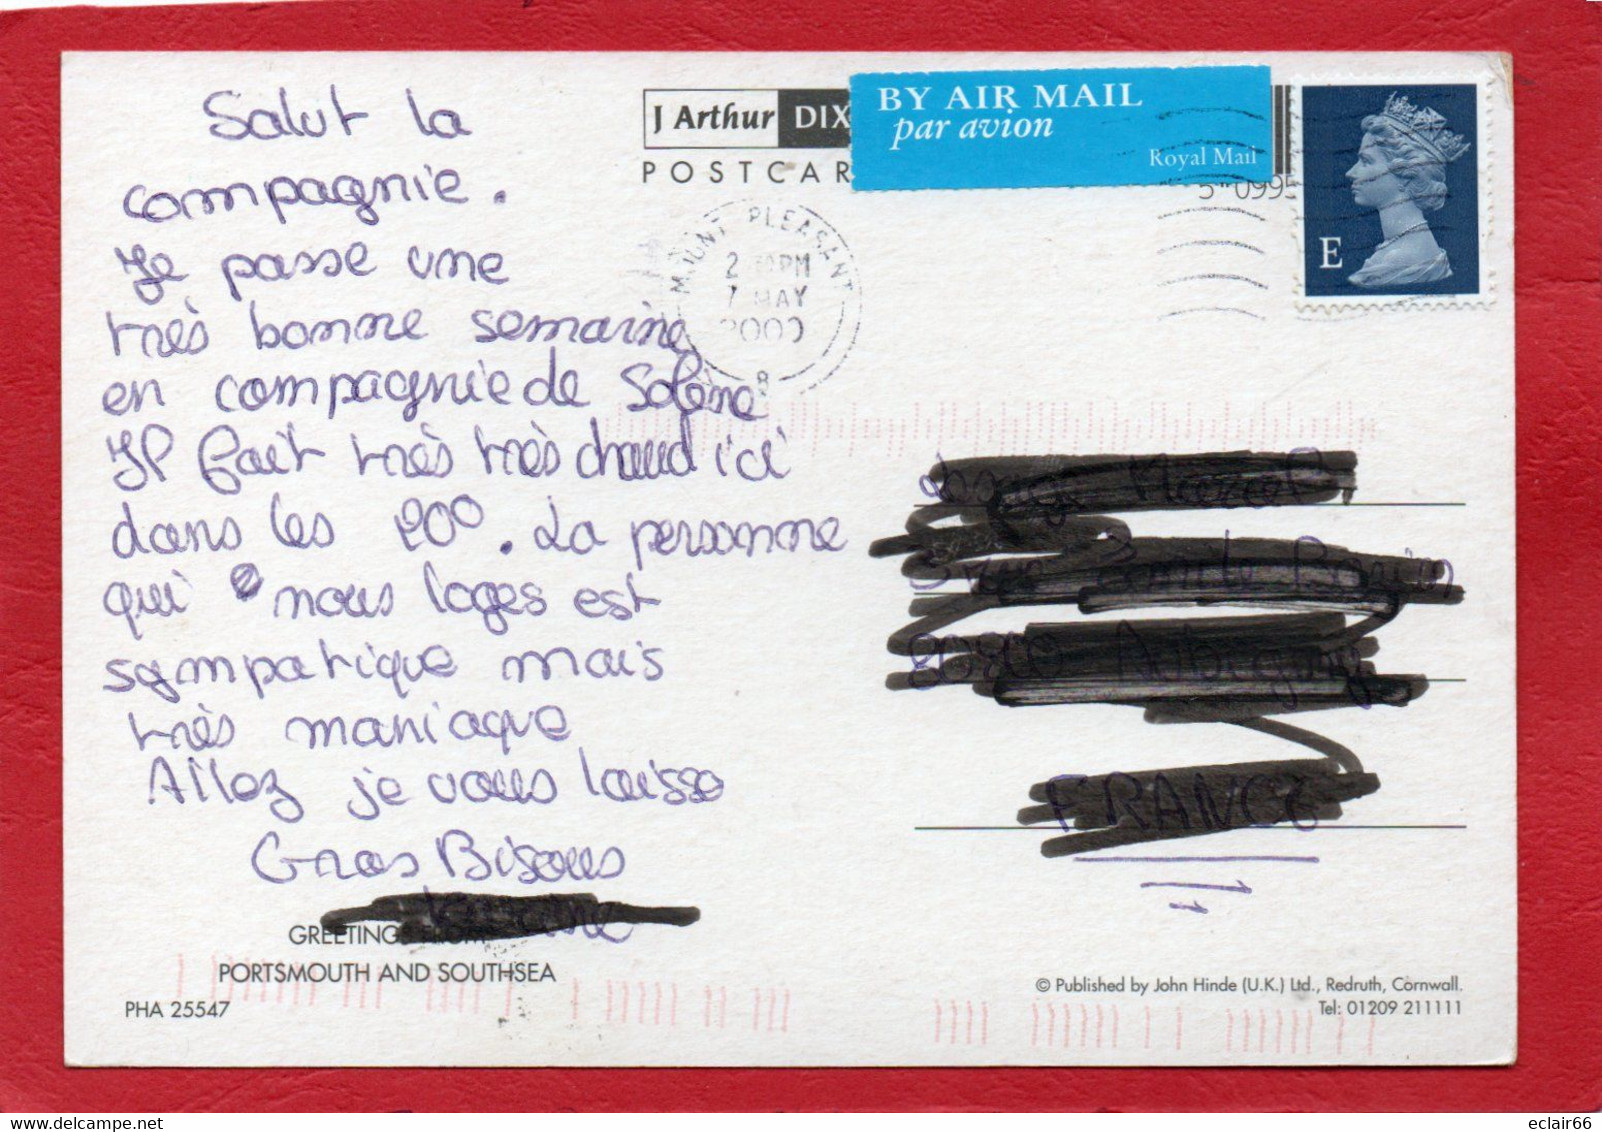 Salut la
compagnie.
Je passe une
très bonne semaine
en compagnie de Solène
Il fait très très chaud ici
dans les 20°. La personne
qui nous loges est
sympatique mais
très maniaque
Allez je vous laisse
Gros Bisous
GREETINGS FROM
PORTSMOUTH AND SOUTHSEA
PHA 25547
J Arthur DIX
POSTCAR
BY AIR MAIL
par avion
Royal Mail
E
MOUNT PLEASANT
PM
7 MAY
2000
8
FRANCE
© Published by John Hinde (U.K.) Ltd., Redruth, Cornwall.
Tel: 01209 211111
delcampe.net
eclair66